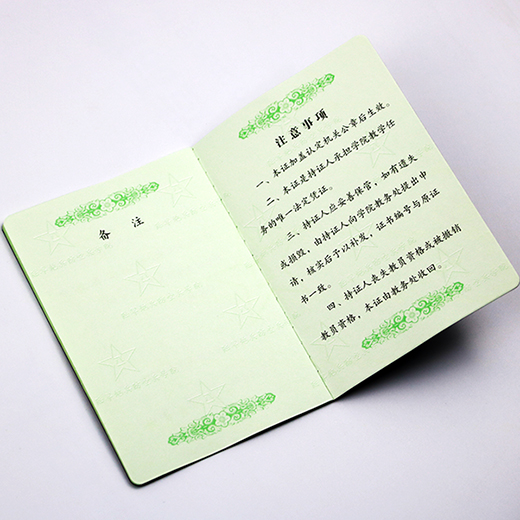 备 注
注意事项
一、本证加盖认定机关公章后生效。
二、本证是持证人承担学院教学任
务的唯一法定凭证。
三、持证人应妥善保管，如有遗失
或损毁，由持证人向学院教务处提出申
请，核实后予以补发，证书编号与原证
书一致。
四、持证人丧失教员资格或被撤销
教员资格，本证由教务处收回。